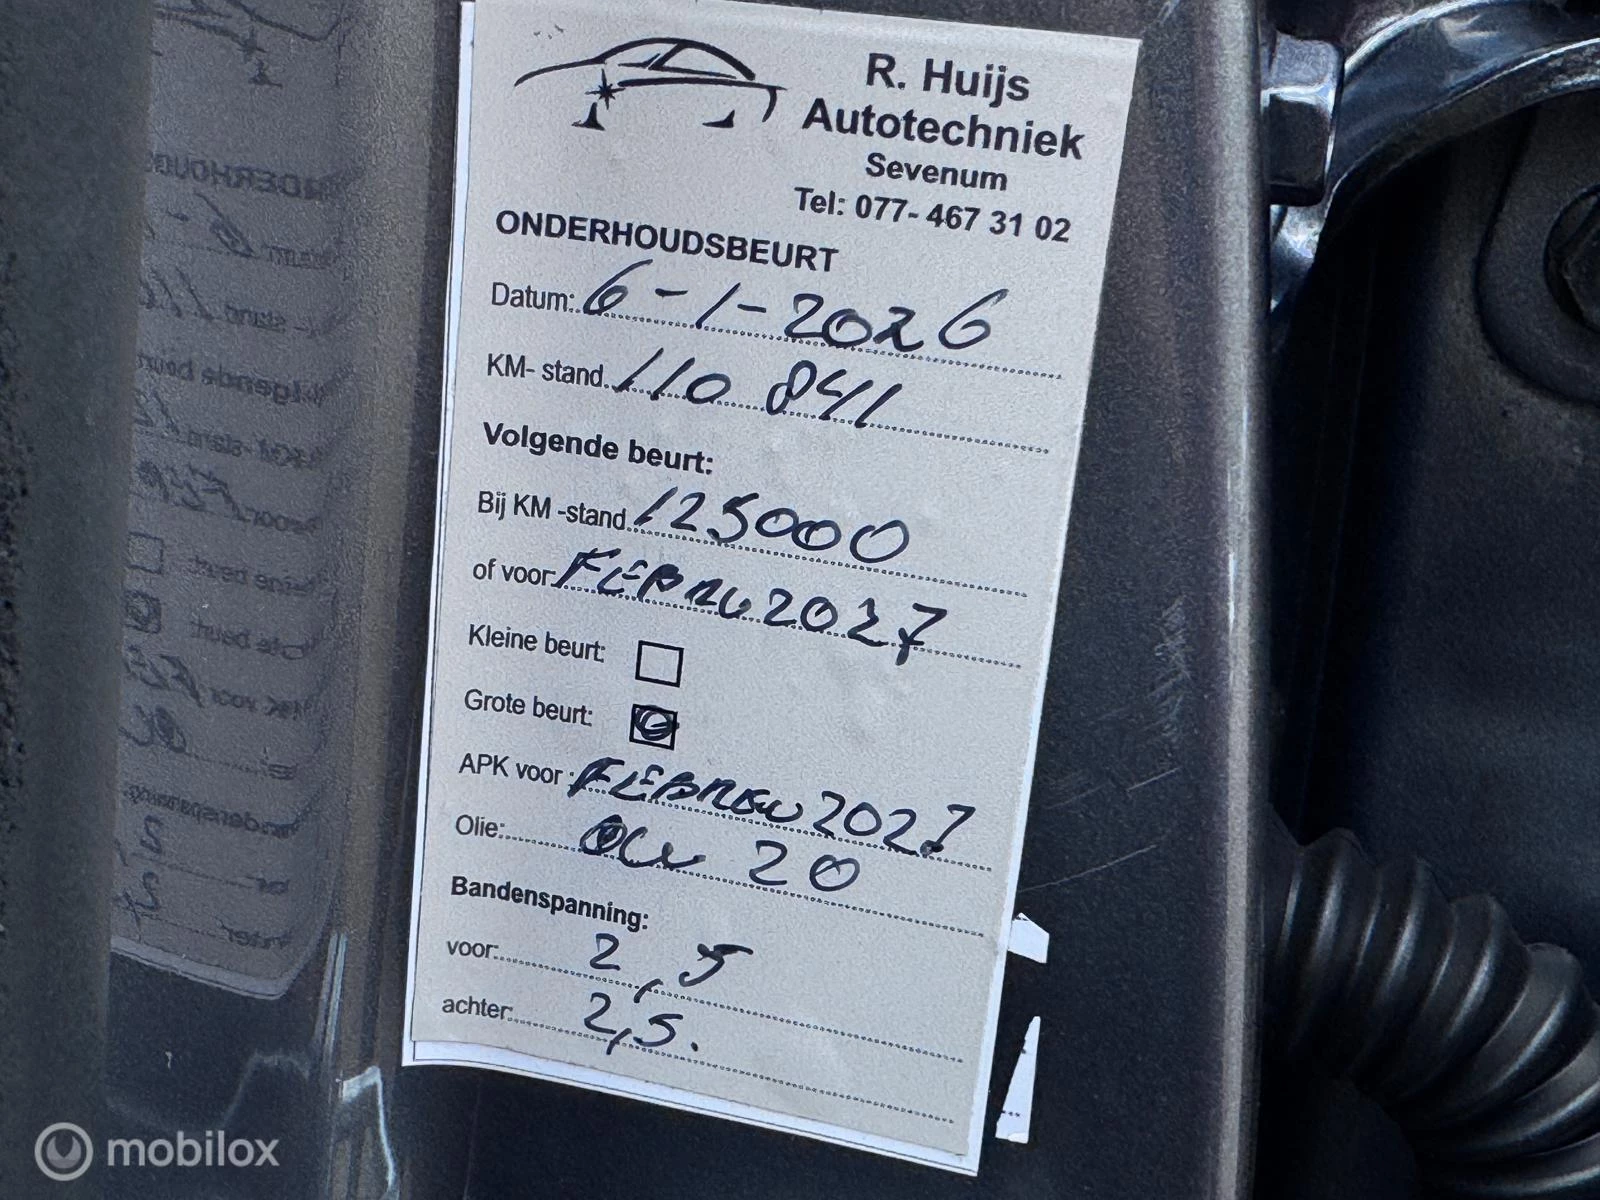 R. Huijs
Autotechniek
Sevenum
Tel: 077- 467 31 02
ONDERHOUDSBEURT
Datum: 6-1-2026
KM- stand 110 841
Volgende beurt:
Bij KM -stand 125000
of voor: FEBRU 2027
Kleine beurt:
Grote beurt:
APK voor : FEBREU 2027
Olie: 0W 20
Bandenspanning:
voor: 2,5
achter: 2,5.
mobilox